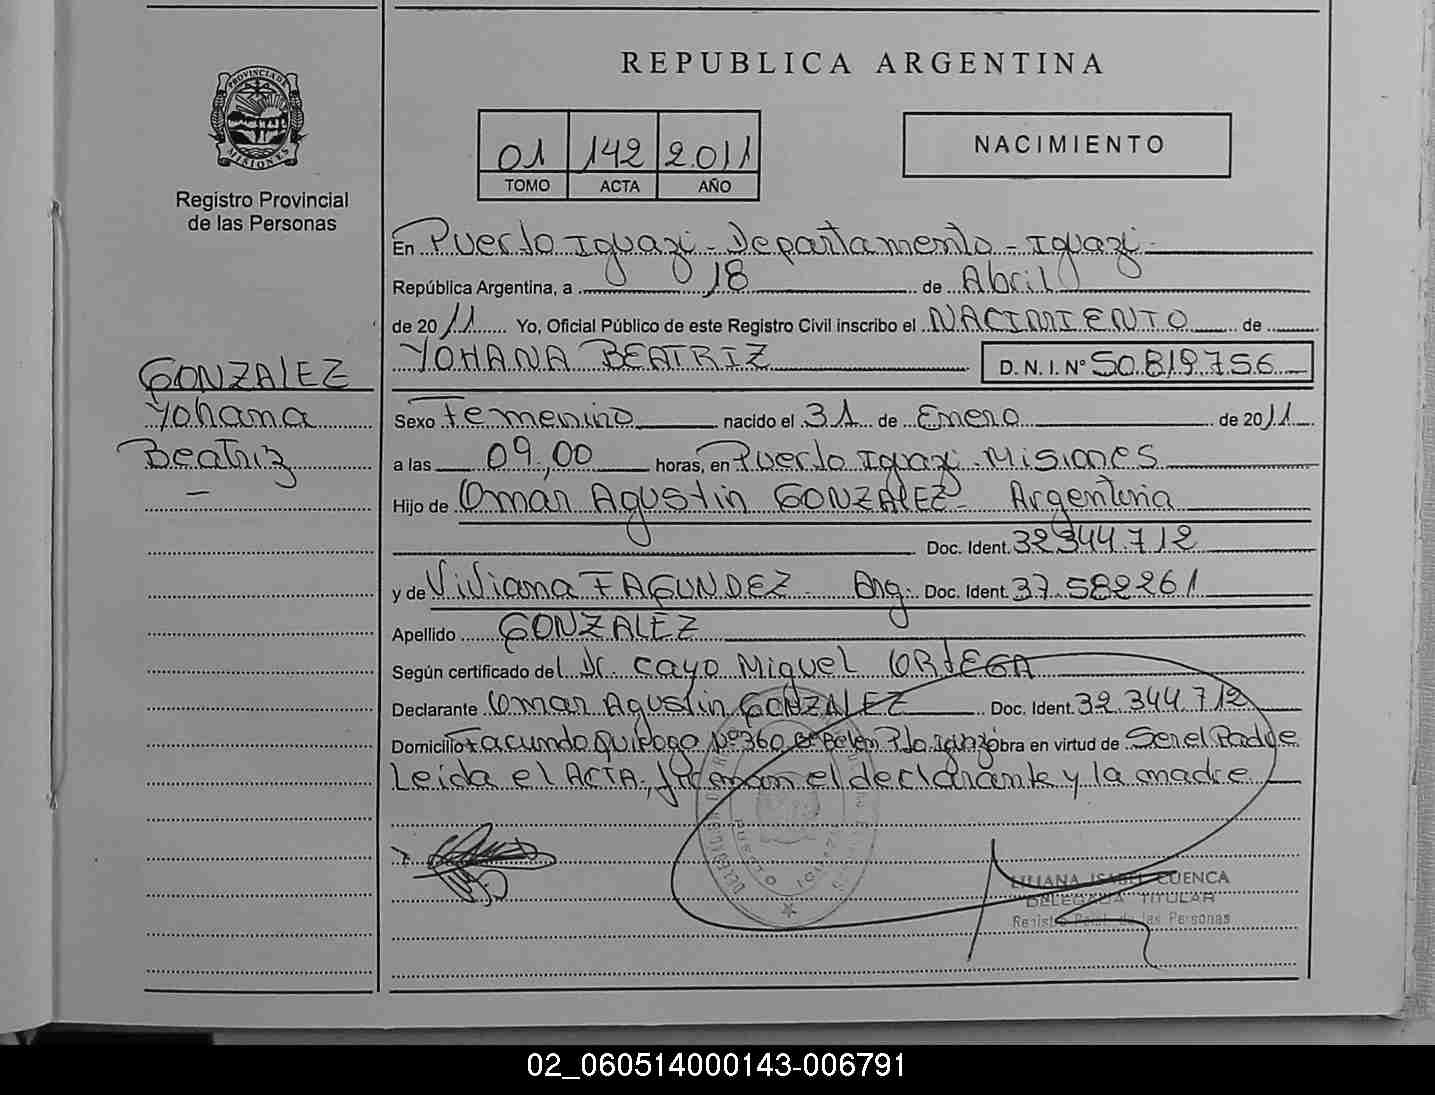 REPUBLICA ARGENTINA
PROVINCIA DE MISIONES
Registro Provincial
de las Personas
01 142 2.011
TOMO ACTA AÑO
NACIMIENTO
En Puerto Iguazú - Departamento - Iguazú -
República Argentina, a 18 de Abril
de 2011 Yo, Oficial Público de este Registro Civil inscribo el NACIMIENTO de
YOHANA BEATRIZ D. N. I. Nº 50.819.756
GONZALEZ
Yohana
Beatriz
Sexo Femenino nacido el 31 de Enero de 2011
a las 09,00 horas, en Puerto Iguazú - Misiones
Hijo de Omar Agustin GONZALEZ - Argentina
Doc. Ident. 32.344.712
y de Viviana FAGUNDEZ - Arg. Doc. Ident. 37.582261
Apellido GONZALEZ
Según certificado del Dr. Cayo Miguel ORTEGA
Declarante Omar Agustin GONZALEZ Doc. Ident. 32.344.712
Domicilio Facundo Quiroga Nº 360 Bº Belén Pto Iguazú obra en virtud de Ser el Padre
Leida el ACTA, firman el declarante y la madre
PUERTO IGUAZU
LILIANA ISABEL CUENCA
DELEGADA TITULAR
Registro de las Personas
02_060514000143-006791